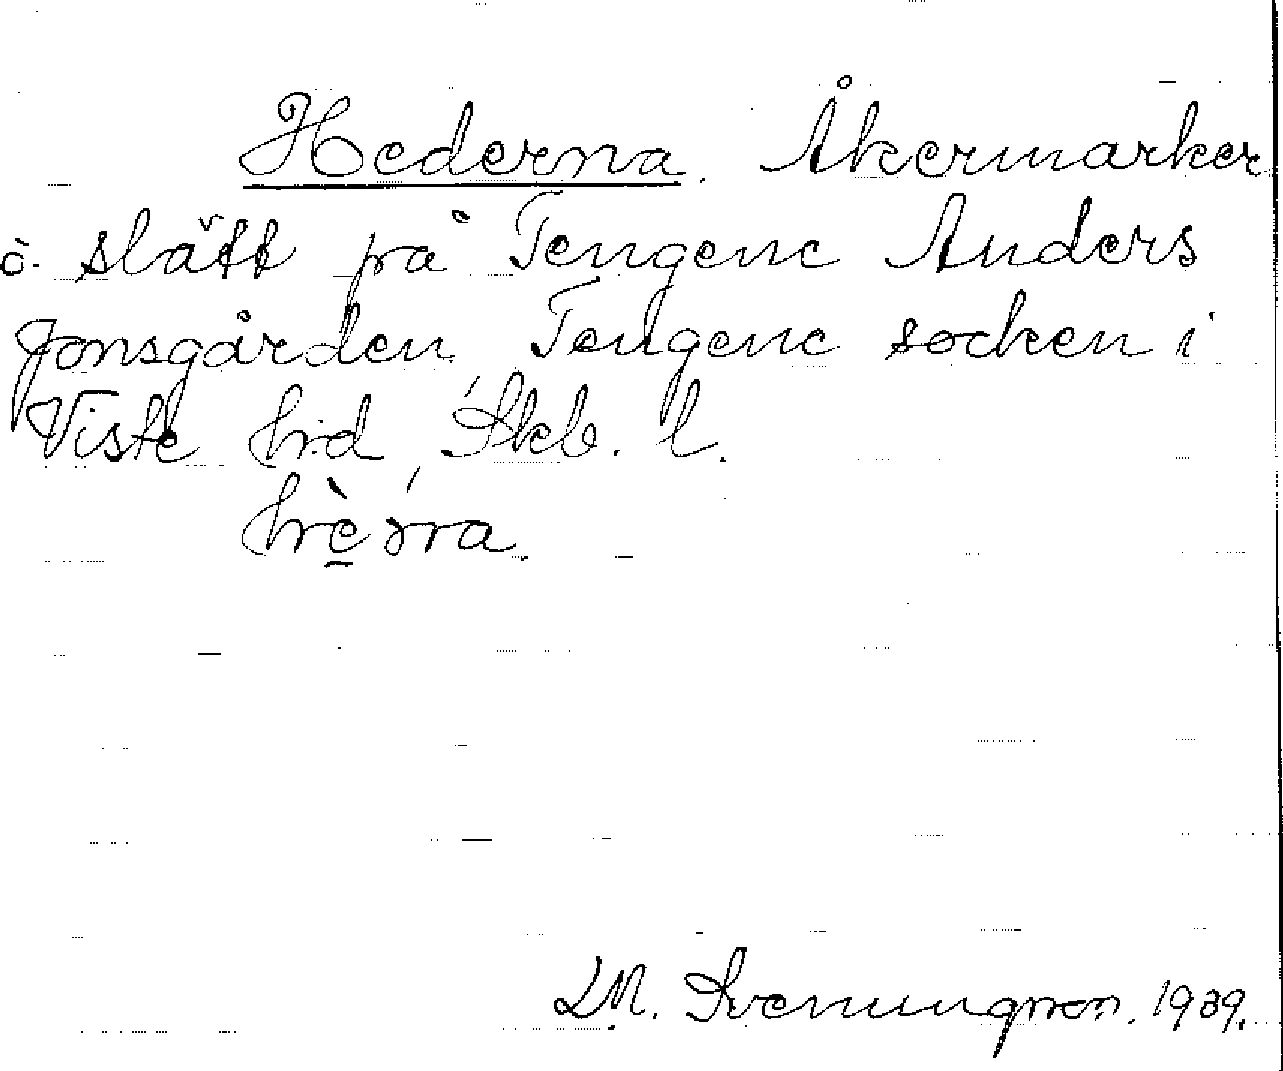 Hederna. Åkermarker
ö slätt på Tengene Anders
Jonsgården, Tengene socken i
Viste hrd, Skb. l.
Svenungsson. 1939.